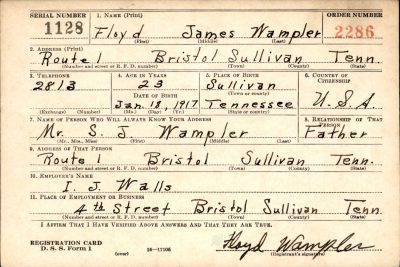 SERIAL NUMBER 1. NAME (Print) ORDER NUMBER
1128 Floyd James Wampler 2286
(First) (Middle) (Last)
2. ADDRESS (Print)
Route 1 Bristol Sullivan Tenn.
(Number and street or R. F. D. number) (Town) (County) (State)
3. TELEPHONE 4. AGE IN YEARS 5. PLACE OF BIRTH 6. COUNTRY OF CITIZENSHIP
2813 23 Sullivan
DATE OF BIRTH (Town or county)
Jan. 18, 1917 Tennessee U.S.A.
(Exchange) (Number) (Mo.) (Day) (Yr.) (State or country)
7. NAME OF PERSON WHO WILL ALWAYS KNOW YOUR ADDRESS 8. RELATIONSHIP OF THAT PERSON
Mr. S. J. Wampler Father
(Mr., Mrs., Miss) (First) (Middle) (Last)
9. ADDRESS OF THAT PERSON
Route 1 Bristol Sullivan Tenn.
(Number and street or R. F. D. number) (Town) (County) (State)
10. EMPLOYER'S NAME
I. J. Walls
11. PLACE OF EMPLOYMENT OR BUSINESS
4th Street Bristol Sullivan Tenn.
(Number and street or R. F. D. number) (Town) (County) (State)
I AFFIRM THAT I HAVE VERIFIED ABOVE ANSWERS AND THAT THEY ARE TRUE.
REGISTRATION CARD Floyd Wampler
D. S. S. Form 1 (over) 16—17105 (Registrant's signature)